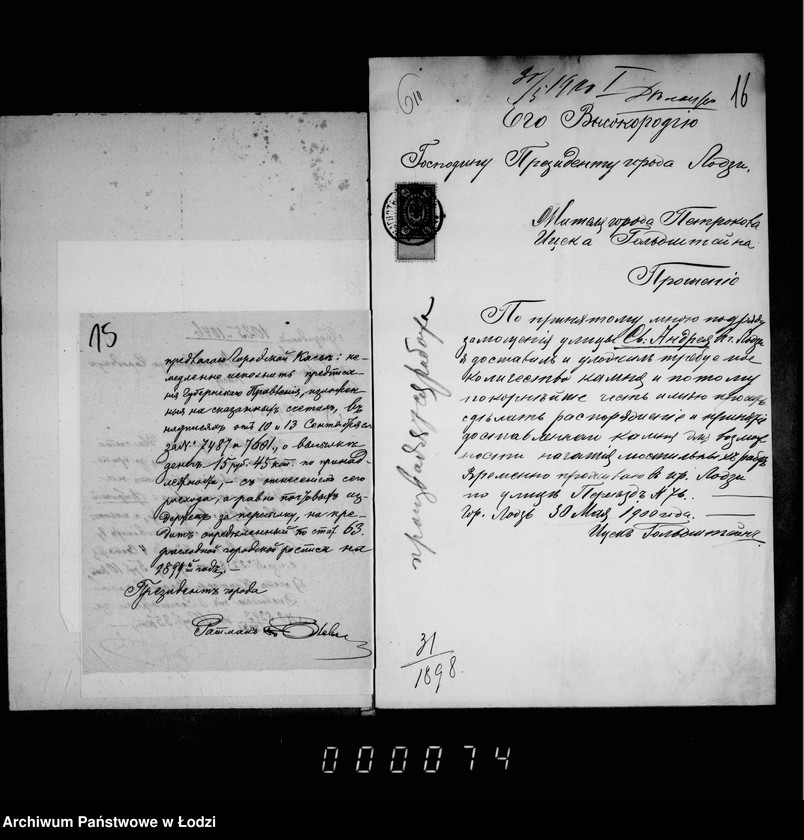 15
предлагаю Городской Кассѣ: не-
медленно исполнить предписа-
нія Губернскаго Правленія, изложен-
ныя на сказанныхъ счетахъ, въ
надписяхъ отъ 10 и 13 Сентября с.г.
за №: 7487 и 7601, о высылкѣ
денегъ 15 руб. 45 коп. по принад-
лежности, – съ отнесеніемъ сего
расхода, а равно почтовыхъ из-
держекъ за пересылку, на кре-
дитъ опредѣленный по стат. 63
расходной городской росписи на
1899 годъ. –
Президентъ города
Ратманъ
16
31/5 1900 I
Его Высокородію
Господину Президенту города Лодзи.
Жителя города Петрокова
Ицека Гольдштайна
Прошеніе
По принятому мною подряду
замощенія улицы Св. Андрея въ г. Лодзи
я доставилъ и уложилъ требуемое
количество камня и потому
покорнѣйше честь имѣю просить
сдѣлать распоряженіе о принятіи
доставленнаго камня для возмож-
ности начатія мостильныхъ работъ
Временно проживаю въ гр. Лодзи
по улицѣ Переѣздъ №
гр. Лодзь 30 Мая 1900 года.
Ицекъ Гольдштайнъ
31/1898.
000074
Archiwum Państwowe w Łodzi